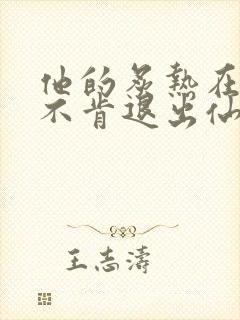 他的炙热在
不肯退出仙
王志濤